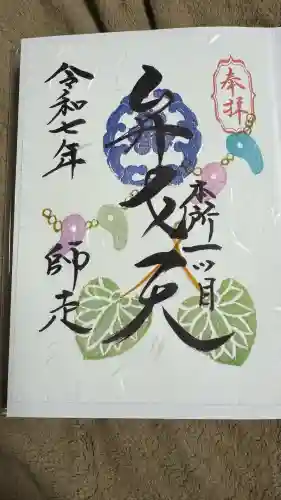 奉拝
本所一ツ目
弁才天
令和七年
師走